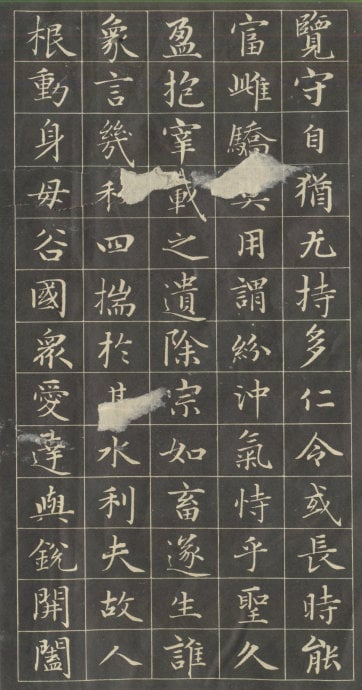 覽守自猶无持多仁令或長時能
富雌驕用謂紛沖氣恃乎聖久
盈抱宰載之遺除宗如畜遂生誰
衆言幾利四揣於其水利夫故人
根動身毋谷國衆愛達與銳開闔